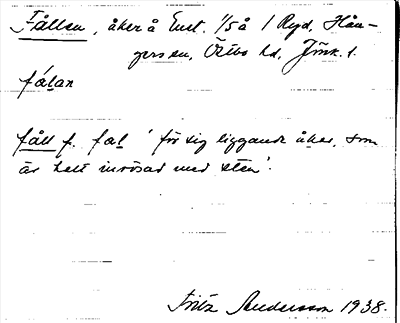 Fållen, åker å Enst. 1/5 å 1 Ryd, Hån-
gers sn, Östbo hd, Jönk. l.
fålan
fåll f. fal ' för sig liggande åker, som
är helt inrösad med sten'.
Fritz Andersson 1938.